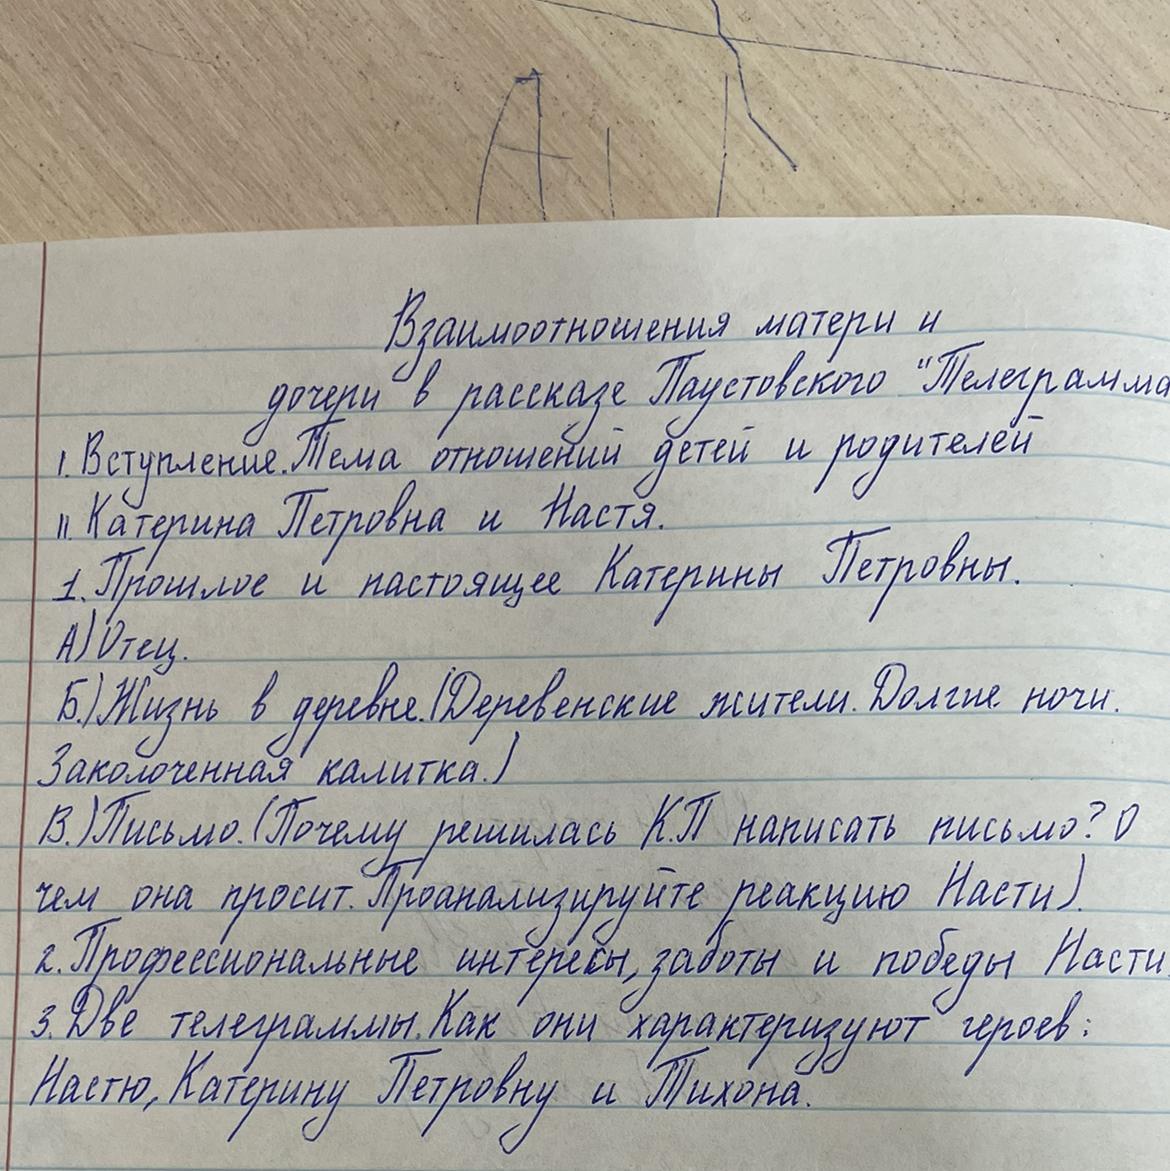 Взаимоотношения матери и
дочери в рассказе Паустовского "Телеграмма
I. Вступление. Тема отношений детей и родителей
II. Катерина Петровна и Настя.
1. Прошлое и настоящее Катерины Петровны.
А) Отец.
Б.) Жизнь в деревне. (Деревенские жители. Долгие ночи.
Заколоченная калитка.)
В.) Письмо. (Почему решилась К.П написать письмо? О
чем она просит. Проанализируйте реакцию Насти).
2. Профессиональные интересы, заботы и победы Насти.
3. Две телеграммы. Как они характеризуют героев:
Настю, Катерину Петровну и Тихона.